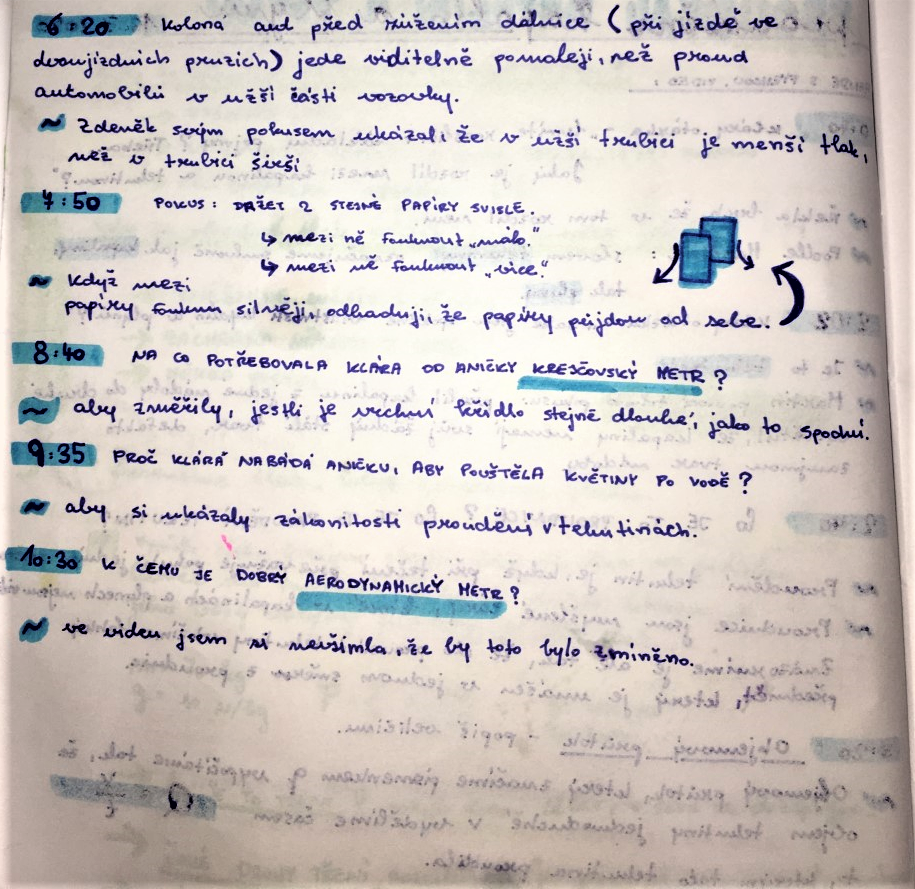 6:20 Kolona aut před zúžením dálnice (při jízdě ve
dvoujízdních pruzích) jede viditelně pomaleji, než proud
automobilů v užší části vozovky.
~ Zdeněk svým pokusem ukázal, že v užší trubici je menší tlak,
než v trubici širší
7:50 POKUS: DRŽET 2 STEJNÉ PAPÍRY SVISLE.
↳ mezi ně fouknout „málo."
↳ mezi ně fouknout „více."
~ když mezi
papíry fouknu silněji, odhaduji, že papíry půjdou od sebe.
8:40 NA CO POTŘEBOVALA KLÁRA OD ANIČKY KREJČOVSKÝ METR?
~ aby změřily, jestli je vrchní křídlo stejně dlouhé, jako to spodní.
9:35 PROČ KLÁRA NABÁDÁ ANIČKU, ABY POUŠTĚLA KVĚTINY PO VODĚ?
~ aby si ukázaly zákonitosti proudění v tekutinách.
10:30 K ČEMU JE DOBRÝ AERODYNAMICKÝ METR?
~ ve videu jsem si nevšimla, že by toto bylo zmíněno.